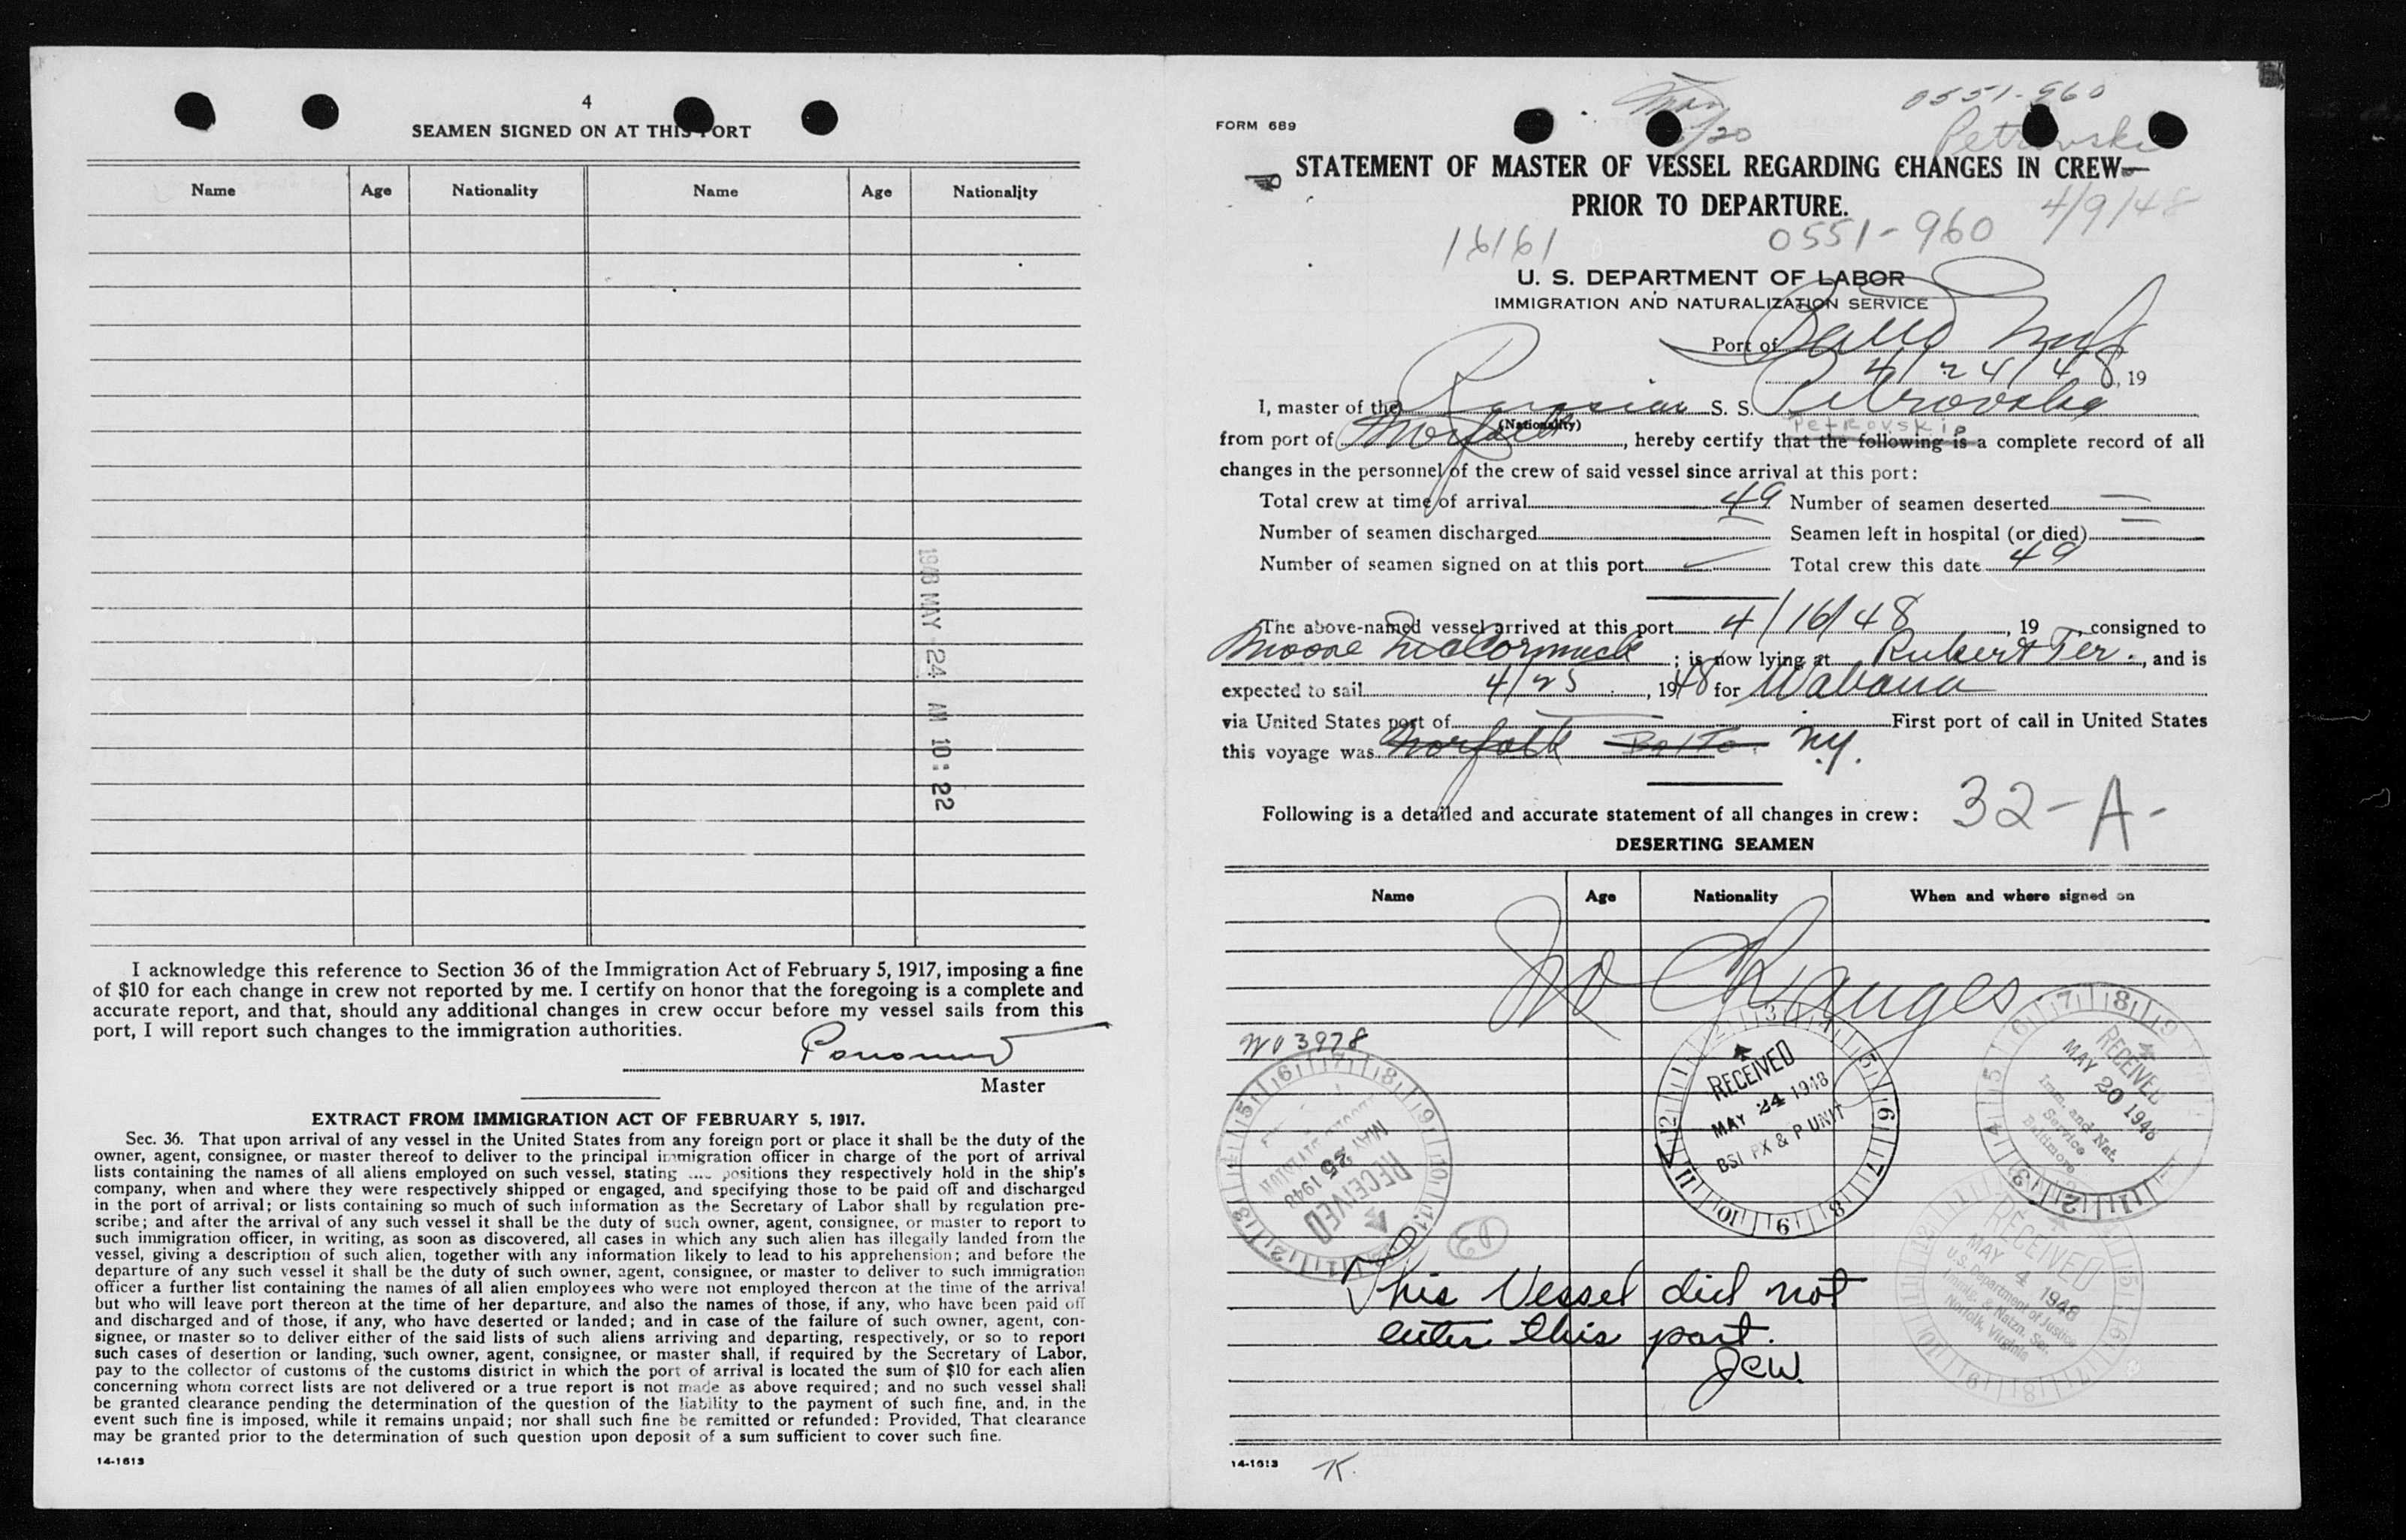 4
SEAMEN SIGNED ON AT THIS PORT
Name Age Nationality Name Age Nationality
1948 MAY 24 AM 10:22
I acknowledge this reference to Section 36 of the Immigration Act of February 5, 1917, imposing a fine
of $10 for each change in crew not reported by me. I certify on honor that the foregoing is a complete and
accurate report, and that, should any additional changes in crew occur before my vessel sails from this
port, I will report such changes to the immigration authorities.
Master
EXTRACT FROM IMMIGRATION ACT OF FEBRUARY 5, 1917.
Sec. 36. That upon arrival of any vessel in the United States from any foreign port or place it shall be the duty of the
owner, agent, consignee, or master thereof to deliver to the principal immigration officer in charge of the port of arrival
lists containing the names of all aliens employed on such vessel, stating positions they respectively hold in the ship's
company, when and where they were respectively shipped or engaged, and specifying those to be paid off and discharged
in the port of arrival; or lists containing so much of such information as the Secretary of Labor shall by regulation pre-
scribe; and after the arrival of any such vessel it shall be the duty of such owner, agent, consignee, or master to report to
such immigration officer, in writing, as soon as discovered, all cases in which any such alien has illegally landed from the
vessel, giving a description of such alien, together with any information likely to lead to his apprehension; and before the
departure of any such vessel it shall be the duty of such owner, agent, consignee, or master to deliver to such immigration
officer a further list containing the names of all alien employees who were not employed thereon at the time of the arrival
but who will leave port thereon at the time of her departure, and also the names of those, if any, who have been paid off
and discharged and of those, if any, who have deserted or landed; and in case of the failure of such owner, agent, con-
signee, or master so to deliver either of the said lists of such aliens arriving and departing, respectively, or so to report
such cases of desertion or landing, such owner, agent, consignee, or master shall, if required by the Secretary of Labor,
pay to the collector of customs of the customs district in which the port of arrival is located the sum of $10 for each alien
concerning whom correct lists are not delivered or a true report is not made as above required; and no such vessel shall
be granted clearance pending the determination of the question of the liability to the payment of such fine, and, in the
event such fine is imposed, while it remains unpaid; nor shall such fine be remitted or refunded: Provided, That clearance
may be granted prior to the determination of such question upon deposit of a sum sufficient to cover such fine.
14-1613
0551-960
Petrovski
FORM 689
STATEMENT OF MASTER OF VESSEL REGARDING CHANGES IN CREW
PRIOR TO DEPARTURE.
4/9/48
16161 0551-960
U. S. DEPARTMENT OF LABOR
IMMIGRATION AND NATURALIZATION SERVICE
Port of Balto Md
4/24/48, 19
I, master of the Russian S. S. Petrovskip
(Nationality) PETROVSKIP
from port of Norfolk, hereby certify that the following is a complete record of all
changes in the personnel of the crew of said vessel since arrival at this port:
Total crew at time of arrival 49 Number of seamen deserted
Number of seamen discharged Seamen left in hospital (or died)
Number of seamen signed on at this port Total crew this date 49
The above-named vessel arrived at this port 4/16/48, 19 , consigned to
Moore McCormick; is now lying at Rukert Ter., and is
expected to sail 4/25, 1948 for Wabana
via United States port of First port of call in United States
this voyage was Norfolk Balto. N.Y.
Following is a detailed and accurate statement of all changes in crew: 32-A-
DESERTING SEAMEN
Name Age Nationality When and where signed on
No Changes
W03978
RECEIVED
MAY 25 1948
RECEIVED
MAY 24 1948
BSI PX & P UNIT
RECEIVED
MAY 20 1948
Imm. and Nat.
Service
Baltimore
RECEIVED
MAY 4 1948
U.S. Department of Justice
Immig. & Natzn. Ser.
Norfolk, Virginia
This Vessel did not
enter this port.
JCW.
14-1613 K.